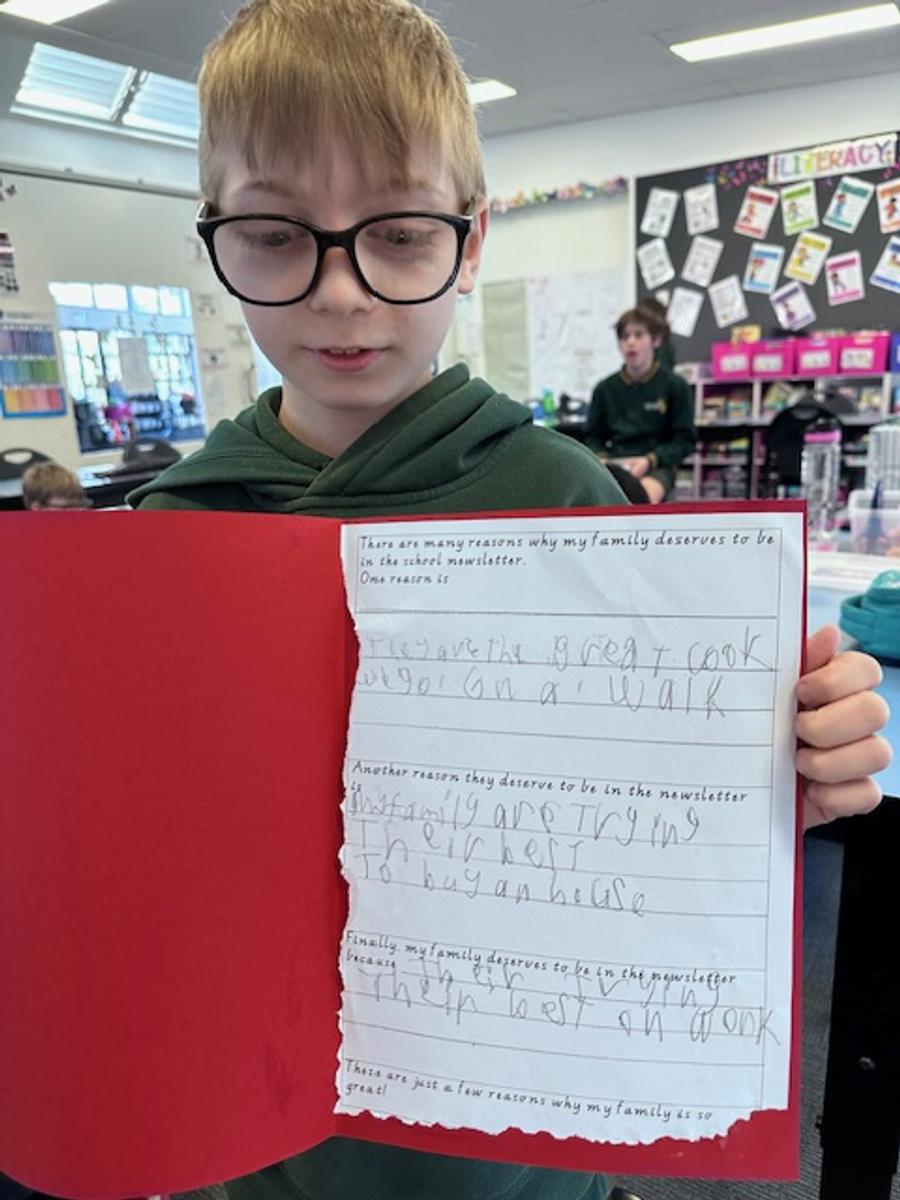 LITERACY
There are many reasons why my family deserves to be
in the school newsletter.
One reason is
They are the great cook
we go on a walk
Another reason they deserve to be in the newsletter
is
my family are Trying
Their best
To buy an house
Finally, my family deserves to be in the newsletter
because Their Trying
Their best on wonk
These are just a few reasons why my family is so
great!